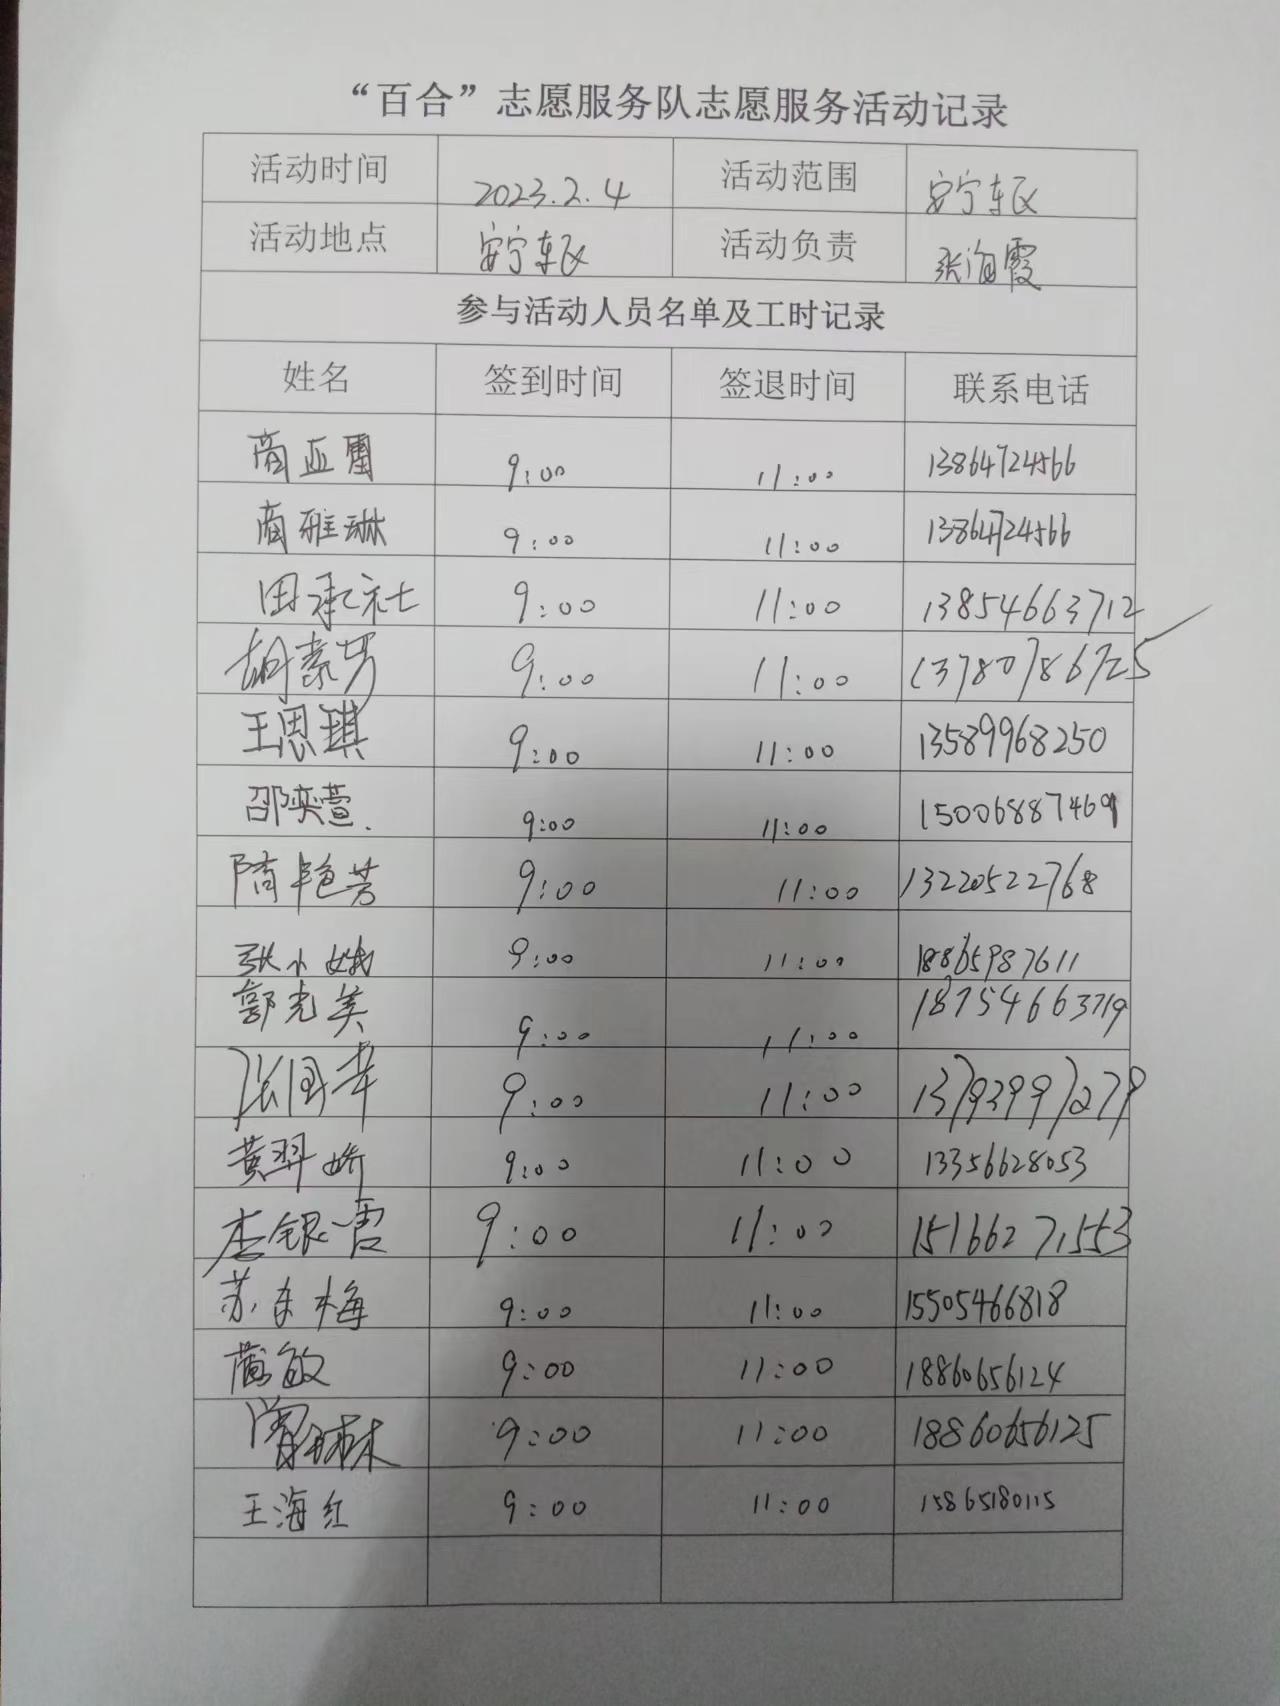 “百合”志愿服务队志愿服务活动记录
活动时间 2023.2.4 活动范围 安宁东区
活动地点 安宁东区 活动负责 张海霞
参与活动人员名单及工时记录
姓名 签到时间 签退时间 联系电话
商亚 9:00 11:00 13864724566
商雅琳 9:00 11:00 13864724566
田承社 9:00 11:00 13854663712
胡素芳 9:00 11:00 13780786725
王思琪 9:00 11:00 13589968250
邵奕萱 9:00 11:00 15006887469
隋艳芳 9:00 11:00 13220522768
张小娥 9:00 11:00 18865987611
郭光美 9:00 11:00 18754663719
张国华 9:00 11:00 13793997279
黄羿娇 9:00 11:00 13356628053
李银霞 9:00 11:00 15166271553
苏东梅 9:00 11:00 15505466818
敏 9:00 11:00 18860656124
9:00 11:00 18860656125
王海红 9:00 11:00 15865180115